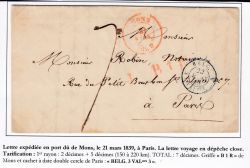 MONS
Monsieur
Monsieur Robin Notaire
Rue du Petit Bourbon N° 7
à Paris
B 1 R
Lettre expédiée en port dû de Mons, le 21 mars 1839, à Paris. La lettre voyage en dépêche close.
Tarification : 1er rayon : 2 décimes + 5 décimes (150 à 220 km). TOTAL : 7 décimes. Griffe « B 1 R » de
Mons et cachet à date double cercle de Paris : « BELG. 3 VALnes 3 ».